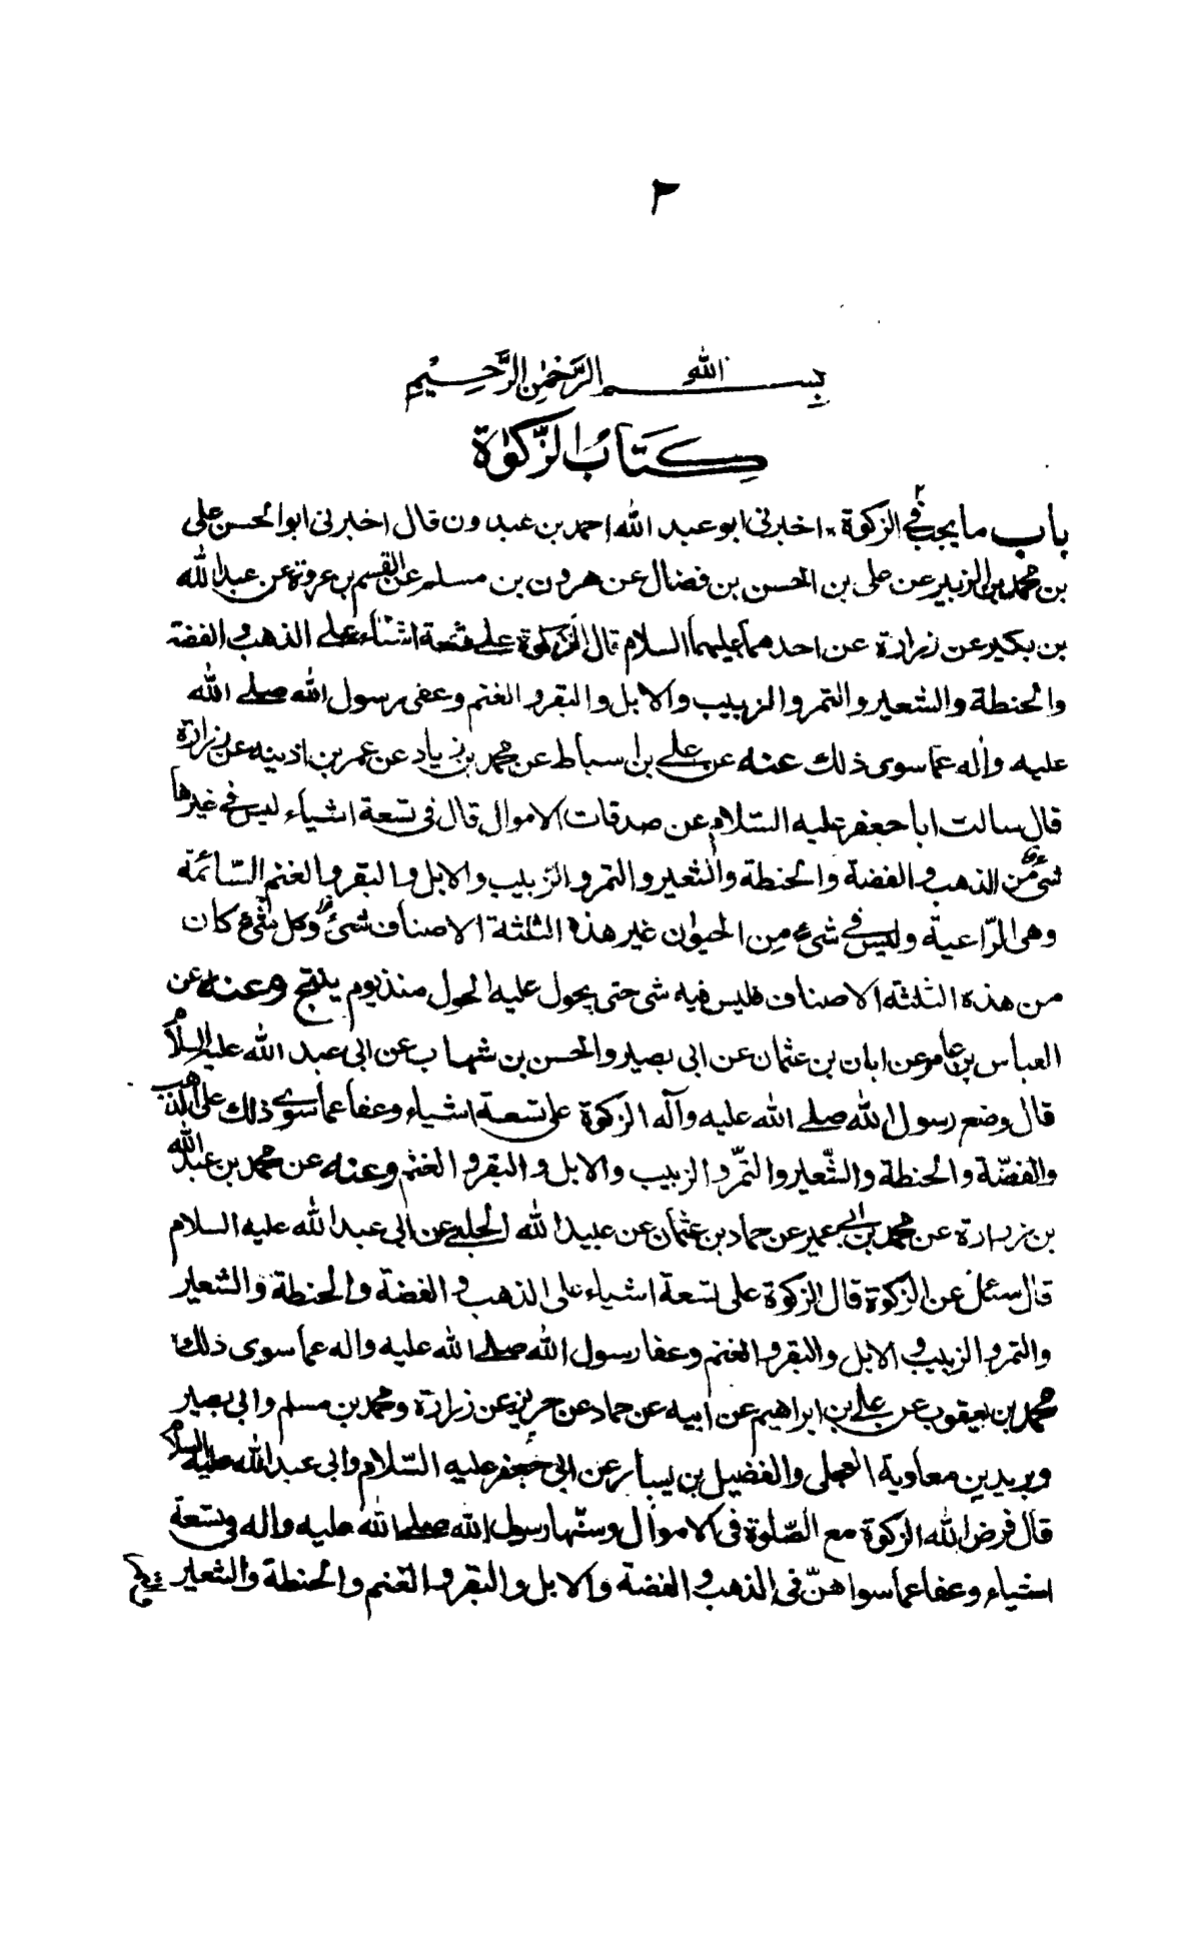 ٢
بسم الله الرَّحْمٰنِ الرَّحِيْمِ
كِتَابُ الزَّكوٰة
باب ما يجب في الزكوة * اخبرنى ابو عبد الله احمد بن عبدون قال اخبرنى ابو الحسن على
بن محمد بن الزبير عن على بن الحسن بن فضال عن هرون بن مسلم عن القسم بن عروة عن عبد الله
بن بكير عن زرارة عن احدهما عليهما السلام قال الزكوة على تسعة اشياء على الذهب والفضة
والحنطة والشعير والتمر والزبيب والابل والبقر والغنم وعفى رسول الله صلى الله
عليه واله عما سوى ذلك عنه عن على بن اسباط عن محمد بن زياد عن عمر بن اذينه عن زرارة
قال سالت ابا جعفر عليه السّلام عن صدقات الاموال قال فى تسعة اشياء ليس في غيرها
شئ من الذهب والفضة والحنطة والشعير والتمر والزبيب والابل والبقر والغنم السّائمة
وهى الرّاعية وليس في شئ مِن الحيوان غير هذه الثلثة الاصناف شئ وكل شئ كان
من هذه الثلثة الاصناف فليس فيه شى حتى يحول عليه الحول منذ يوم ينتج وعنه عن
العباس بن عامر عن ابان بن عثمان عن ابى بصير والحسن بن شهاب عن ابى عبد الله عليه السلام
قال وضع رسول الله صلى الله عليه وآله الزكوة على تسعة اشياء وعفا عما سوى ذلك على الذهب
والفضّة والحنطة والشّعير والتمّر والزبيب والابل والبقر والغنم وعنه عن محمد بن عبد الله
بن زرارة عن محمد بن ابى عمير عن حماد بن عثمان عن عبيد الله الحلبى عن ابى عبد الله عليه السلام
قال سئل عن الزكوة قال الزكوة على تسعة اشياء على الذهب والفضة والحنطة والشعير
والتمر والزبيب والابل والبقر والغنم وعفا رسول الله صلى الله عليه واله عما سوى ذلك
محمد بن يعقوب عن على بن ابراهيم عن ابيه عن حماد عن حريز عن زرارة ومحمد بن مسلم وابى بصير
وبريد بن معاوية العجلى والفضيل بن يسار عن ابى جعفر عليه السّلام وابى عبد الله عليه السلام
قال فرض الله الزكوة مع الصّلوة فى الاموال وسنّها رسول الله صلى الله عليه واله فى تسعة
اشياء وعفا عما سواهنّ فى الذهب والفضة والابل والبقر والغنم والحنطة والشعير